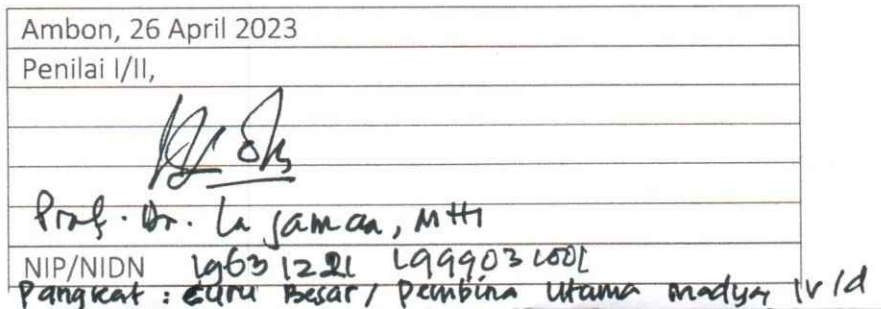 Ambon, 26 April 2023
Penilai I/II,
Prof. Dr. La Jamaa, MHI
NIP/NIDN 19631221 199903 1001
Pangkat : Guru Besar / Pembina Utama Madya, IV/d